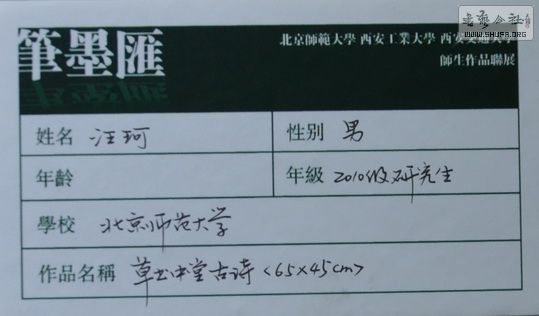 筆墨匯
北京師範大學 西安工業大學 西安交通大學
師生作品聯展
姓名 汪珂 性別 男
年齡 年級 2010级研究生
學校 北京师范大学
作品名稱 草书中堂古诗<65×45cm>
WWW.SHUFA.ORG